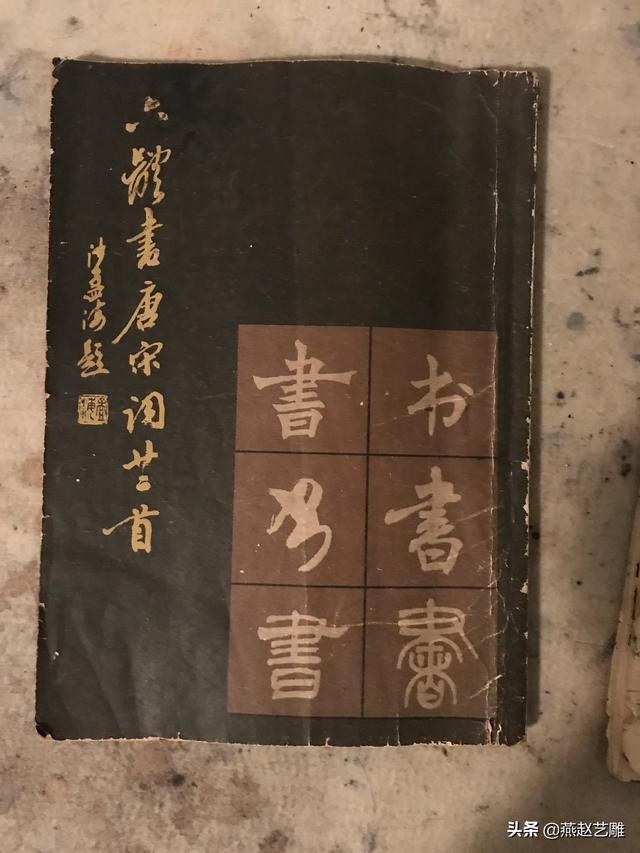 六體書唐宋詞廿二首
沙孟海題
書 书
书 書
書 書
头条 @燕赵艺雕